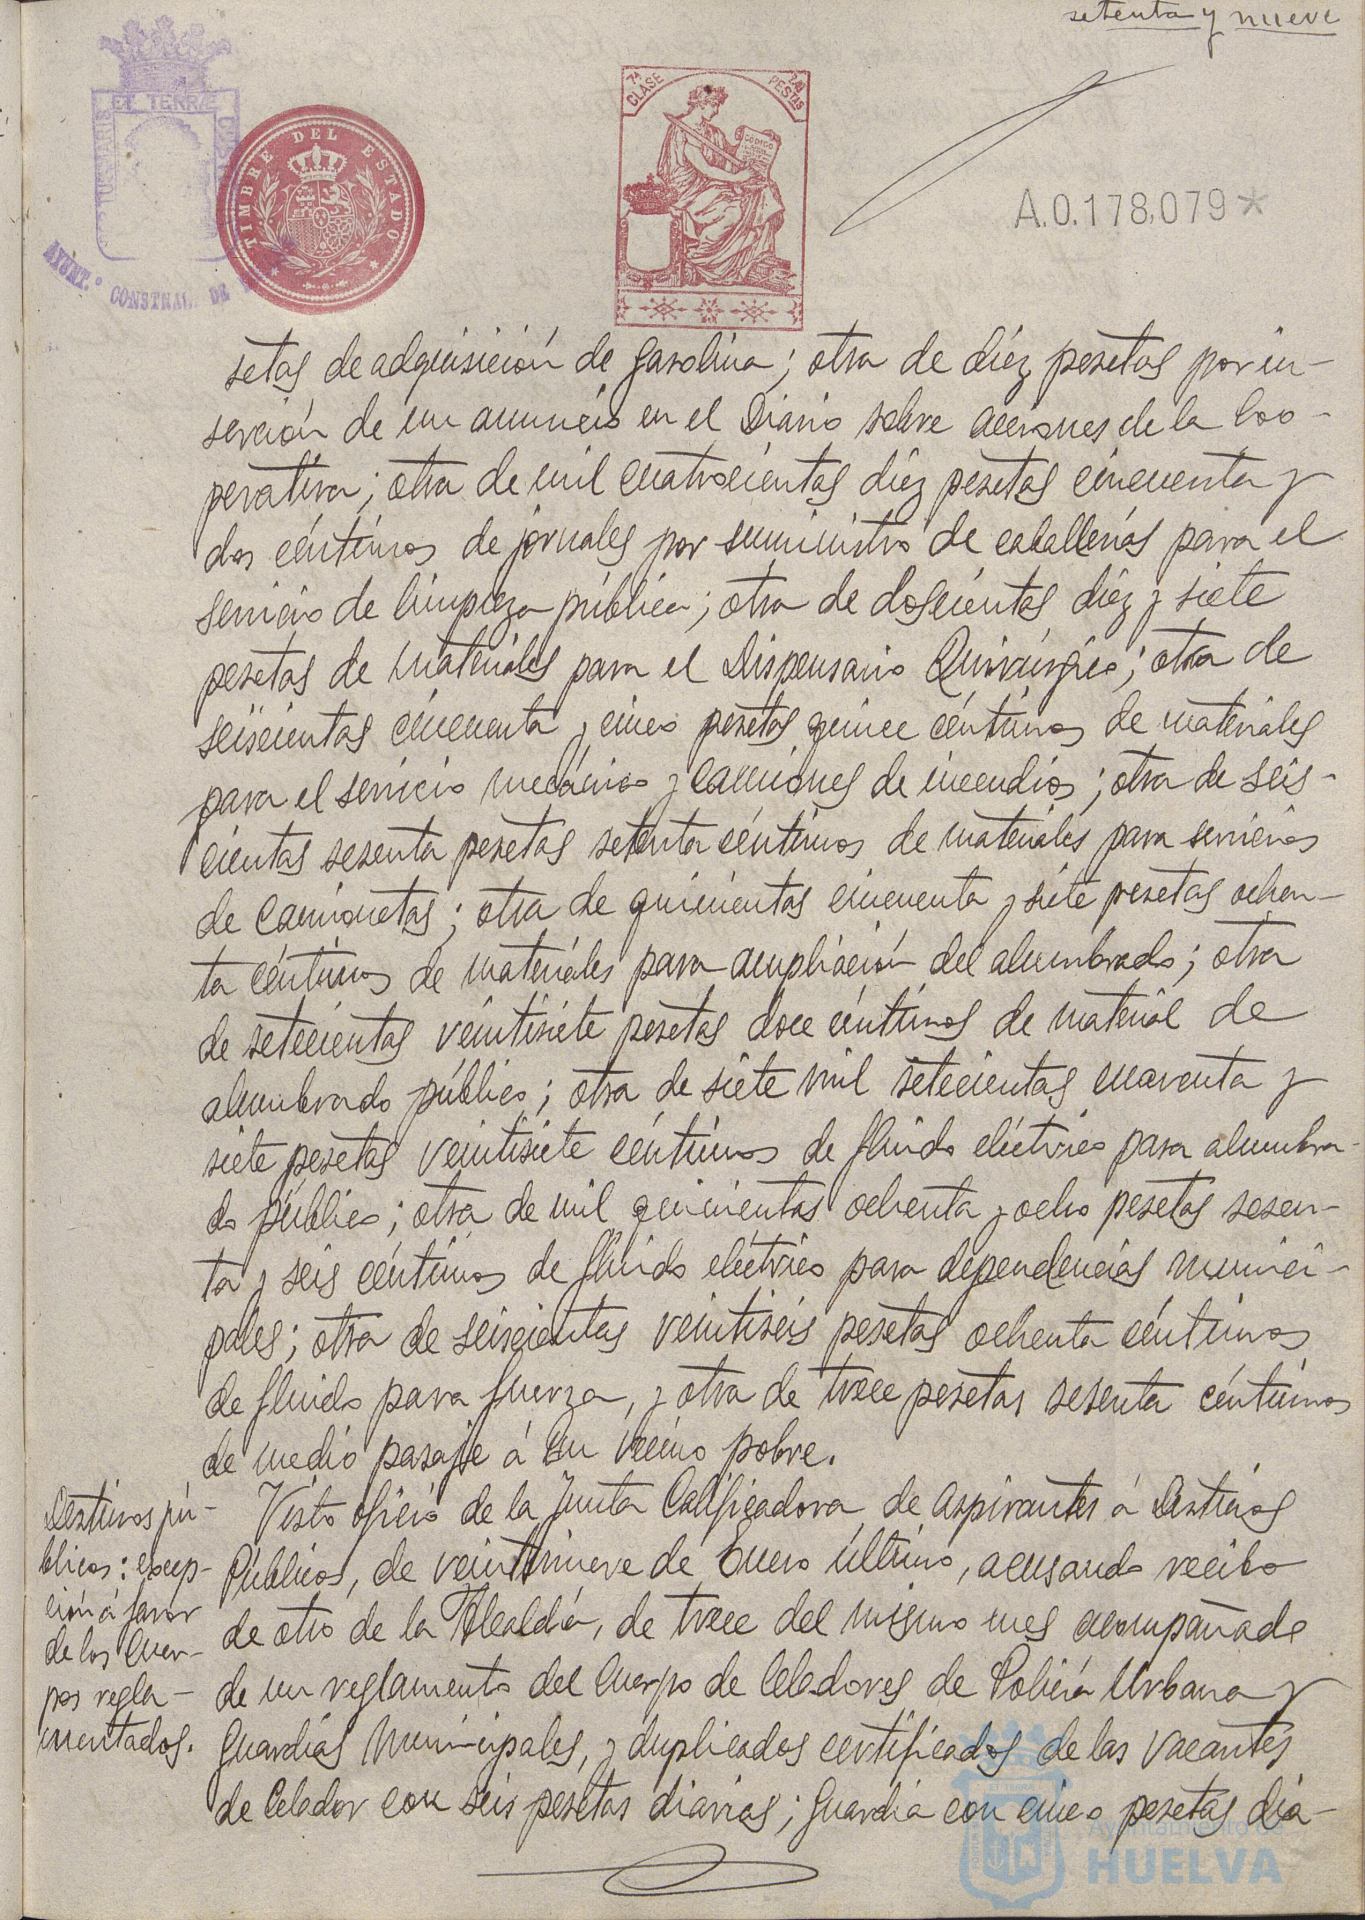 setenta y nueve
ET TERRÆ
TIMBRE DEL ESTADO
7ª CLASE
PESTAS
CODIGO
A.0.178,079*
AYUNT.º CONSTNAL. DE
setas de adquisición de gasolina; otra de diéz pesetas por in-
serción de un anuncio en el Diario sobre acciones de la Coo-
perativa; otra de mil cuatrocientas diéz pesetas cincuenta y
dos céntimos de jornales por suministro de caballerías para el
servicio de limpieza pública; otra de doscientas diéz y siete
pesetas de materiales para el Dispensario Quirúrgico; otra de
seiscientas cincuenta y cinco pesetas quince céntimos de materiales
para el servicio mecánico y camiones de incendios; otra de seis-
cientas sesenta pesetas setenta céntimos de materiales para servicios
de camionetas; otra de quinientas cincuenta y siete pesetas ochen-
ta céntimos de materiales para ampliación del alumbrado; otra
de setecientas veintisiete pesetas doce céntimos de material de
alumbrado público; otra de siete mil setecientas cuarenta y
siete pesetas veintisiete céntimos de fluido eléctrico para alumbra-
do público; otra de mil quinientas ochenta y ocho pesetas sesen-
ta y seis céntimos de fluido eléctrico para dependencias munici-
pales; otra de seiscientas veintiseis pesetas ochenta céntimos
de fluido para fuerza, y otra de trece pesetas sesenta céntimos
de medio pasaje á un vecino pobre.
Destinos pú-
blicos: excep-
ción á favor
de los Cuer-
pos regla-
mentados.
Visto oficio de la Junta Calificadora de Aspirantes á Destinos
Públicos, de veintinueve de Enero último, acusando recibo
de otro de la Alcaldía, de trece del mismo mes acompañado
de un reglamento del Cuerpo de Celadores de Policía Urbana y
Guardias Municipales, y duplicados certificados de las vacantes
de Celador con seis pesetas diarias; Guardia con cinco pesetas dia-
Ayuntamiento de
HUELVA